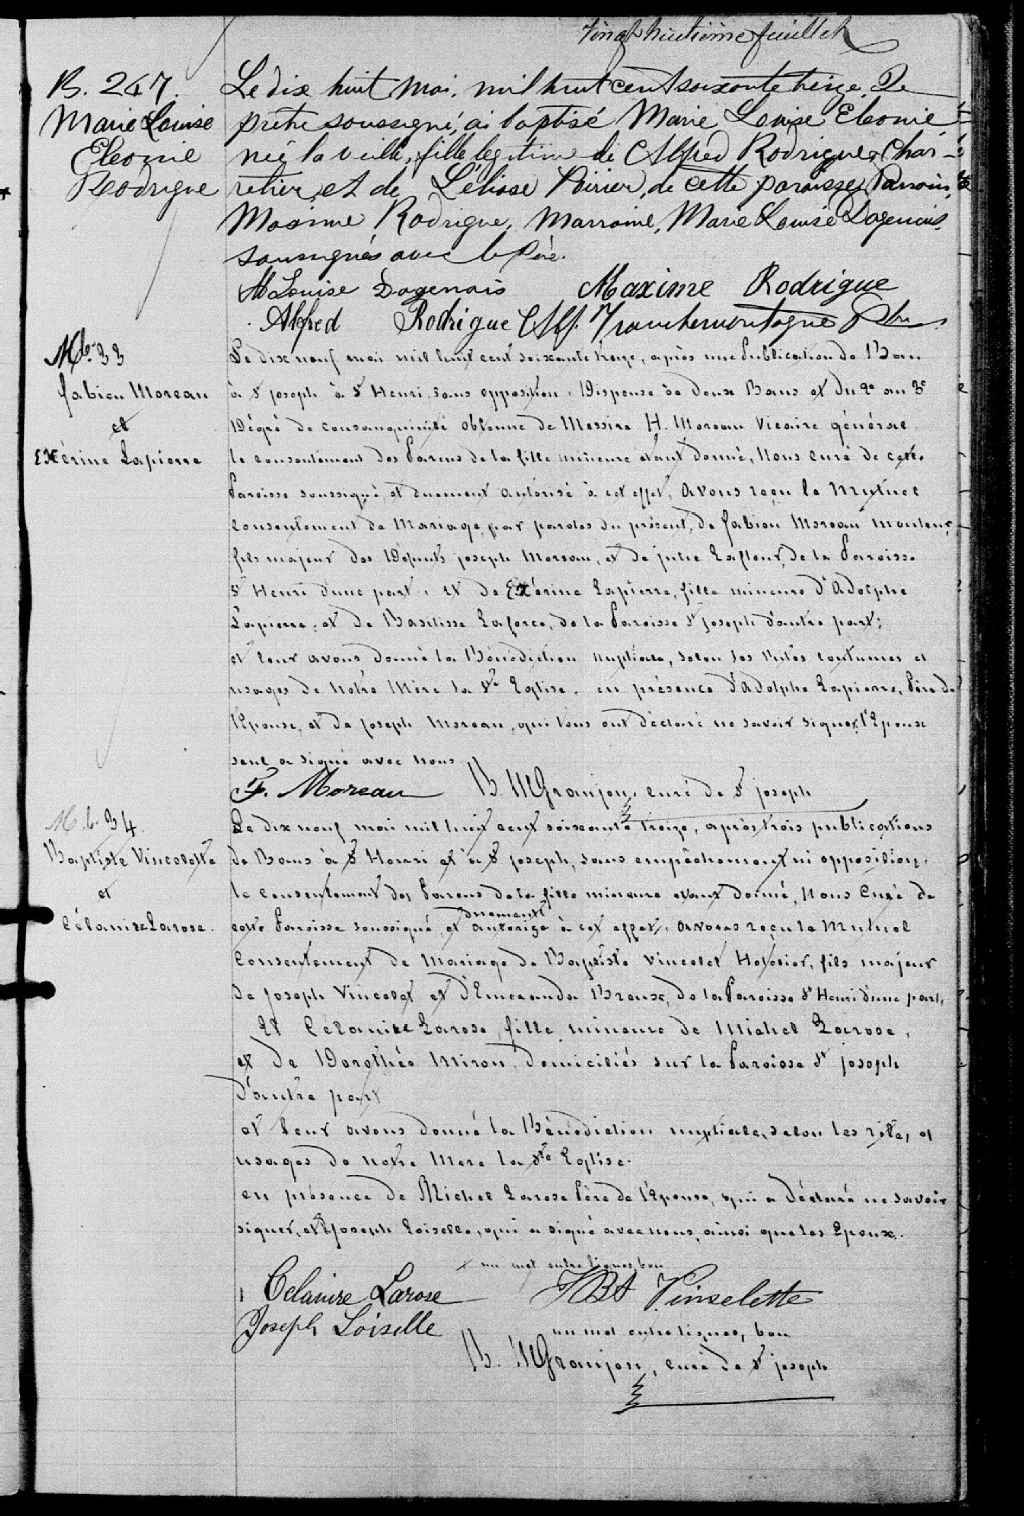 Vingt huitième feuillet
B. 247.
Marie Louise
Eleonie
Rodrigue
Le dix huit Mai, mil huit cent soixante treize, Je
prêtre soussigné, ai baptisé Marie Louise Eleonie
née la veille, fille legitime de Alfred Rodrigue, Char-
retier, et de Lélisse Poirier, de cette paroisse, Parrain,
Maxime Rodrigue, Marraine, Marie Louise Dagenais,
soussignés avec le Père.
M Louise Dagenais Maxime Rodrigue
Alfred Rodrigue Alf. Tranchemontagne Ptre
M. 33
fabien Moreau
et
Exérine Lapierre
Le dix neuf mai mil huit cent soixante treize, après une Publication de Ban
à St joseph à St Henri, sans opposition, Dispense de deux Bans et du 2e au 3e
Dégré de consanguinité obtenue de Messire H. Moreau Vicaire général
le consentement des Parens de la fille mineure étant donné, Nous curé de cette
Paroisse soussigné et duement autorisé à cet effet, avons reçu le Mutuel
consentement de Mariage, par paroles du présent, de fabien Moreau mouleur,
fils majeur des Défunts joseph Moreau, et de julie Lafleur, de la Paroisse
St Henri d'une part, et de Exérine Lapierre, fille mineure d'Adolphe
Lapierre, et de Basilisse Laforce, de la Paroisse St joseph d'autre part;
et leur avons donné la Bénédiction nuptiale, selon les Rites coutumes et
usages de Notre Mère la Ste Eglise, en présence d'Adolphe Lapierre, Père de
l'Epouse, et de joseph Moreau, qui tous ont déclaré ne savoir signer, l'Epoux
seul a signé avec nous
F. Moreau B. Granjon, curé de St joseph
M. b. 34
Baptiste Vincelette
et
Célanire Larose.
Le dix neuf mai mil huit cent soixante treize, après trois publications
de Bans à St Henri et à St joseph, sans empêchement ni opposition,
le consentement des Parens de la fille mineure étant donné, Nous Curé de
duement
cette Paroisse soussigné et autorisé à cet effet, avons reçu le Mutuel
Consentement de Mariage de Baptiste Vincelet Hotelier, fils majeur
de joseph Vincelet et d'Emeranda Breux, de la Paroisse St Henri d'une part,
Et Célanire Larose, fille mineure de Michel Larose,
et de Dorothée Miron, domiciliés sur la Paroisse St joseph
d'autre part
et leur avons donné la Bénédiction nuptiale, selon les rites, et
usages de notre Mere la Ste Eglise.
en présence de Michel Larose Père de l'Epouse, qui a déclaré ne savoir
signer, et Joseph Loiselle, qui a signé avec nous, ainsi que les Epoux.
un mot entre lignes, bon
Celanire Larose JBt Vinselette
Joseph Loiselle
un mot entre lignes, bon
B. Granjon, curé de St joseph